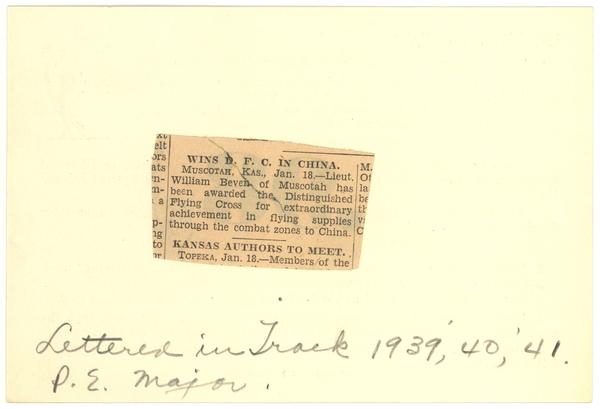 xt
elt
ors
ats
en-
m-
a
p-
ng
to
or
WINS D. F. C. IN CHINA.
MUSCOTAH, KAS., Jan. 18.—Lieut.
William Beven of Muscotah has
been awarded the Distinguished
Flying Cross for extraordinary
achievement in flying supplies
through the combat zones to China.
KANSAS AUTHORS TO MEET.
TOPEKA, Jan. 18.—Members of the
M.
Of
la
be
th
va
C
Lettered in Track 1939, '40, '41.
P. E. Major.